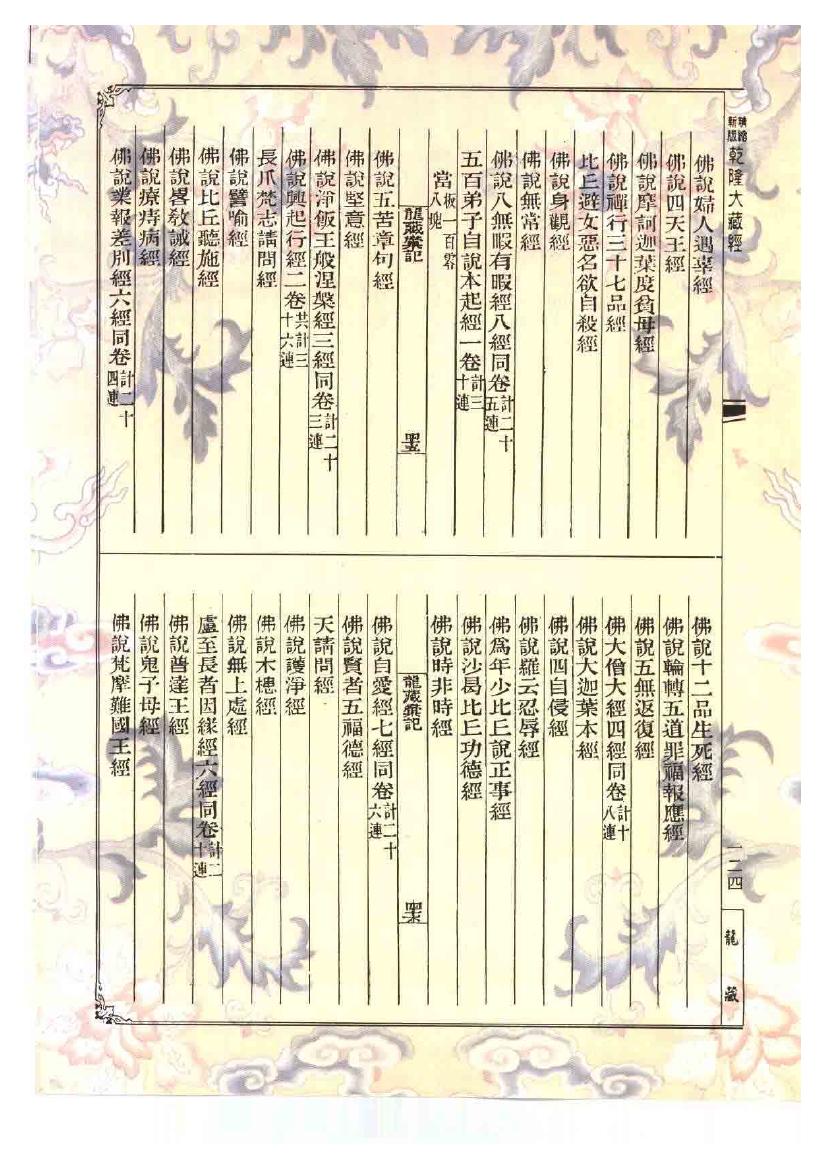 新版
乾隆大藏經
佛說婦人遇辜經
佛說四天王經
佛說摩訶迦葉度貧母經
佛說禪行三十七品經
比丘避女惡名欲自殺經
佛說身觀經
佛說無常經
佛說八無暇有暇經八經同卷計二十五連
五百弟子自說本起經一卷計三十連
當板一百零八塊
龍藏彙記
佛說五苦章句經
佛說堅意經
佛說淨飯王般涅槃經三經同卷計二十三連
佛說興起行經二卷共計三十六連
長爪梵志請問經
佛說譬喻經
佛說比丘聽施經
佛說畧教誡經
佛說療痔病經
佛說業報差別經六經同卷計二十四連
佛說十二品生死經
佛說輪轉五道罪福報應經
佛說五無返復經
佛大僧大經四經同卷計十八連
佛說大迦葉本經
佛說四自侵經
佛說羅云忍辱經
佛為年少比丘說正事經
佛說沙曷比丘功德經
佛說時非時經
龍藏彙記
佛說自愛經七經同卷計二十六連
佛說賢者五福德經
天請問經
佛說護淨經
佛說木槵經
佛說無上處經
盧至長者因緣經六經同卷計二十連
佛說普達王經
佛說鬼子母經
佛說梵摩難國王經
一二四
龍藏